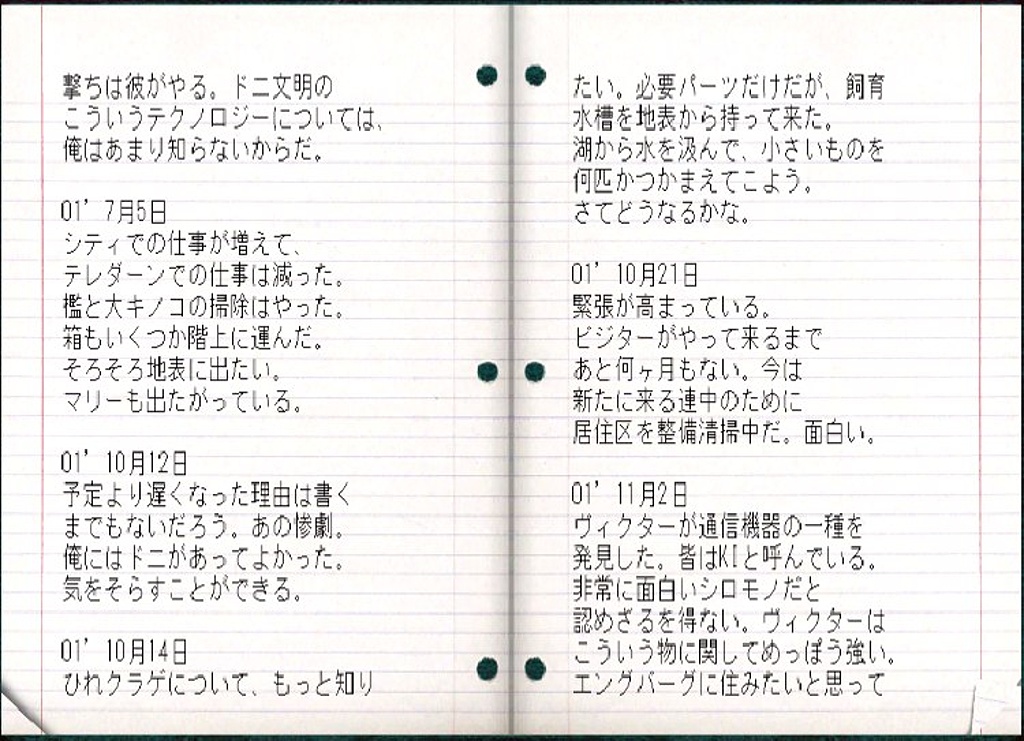 撃ちは彼がやる。ドニ文明の
こういうテクノロジーについては、
俺はあまり知らないからだ。
01’ 7月5日
シティでの仕事が増えて、
テレダーンでの仕事は減った。
檻と大キノコの掃除はやった。
箱もいくつか階上に運んだ。
そろそろ地表に出たい。
マリーも出たがっている。
01’ 10月12日
予定より遅くなった理由は書く
までもないだろう。あの惨劇。
俺にはドニがあってよかった。
気をそらすことができる。
01’ 10月14日
ひれクラゲについて、もっと知り
たい。必要パーツだけだが、飼育
水槽を地表から持って来た。
湖から水を汲んで、小さいものを
何匹かつかまえてこよう。
さてどうなるかな。
01’ 10月21日
緊張が高まっている。
ビジターがやって来るまで
あと何ヶ月もない。今は
新たに来る連中のために
居住区を整備清掃中だ。面白い。
01’ 11月2日
ヴィクターが通信機器の一種を
発見した。皆はKIと呼んでいる。
非常に面白いシロモノだと
認めざるを得ない。ヴィクターは
こういう物に関してめっぽう強い。
エングバーグに住みたいと思って